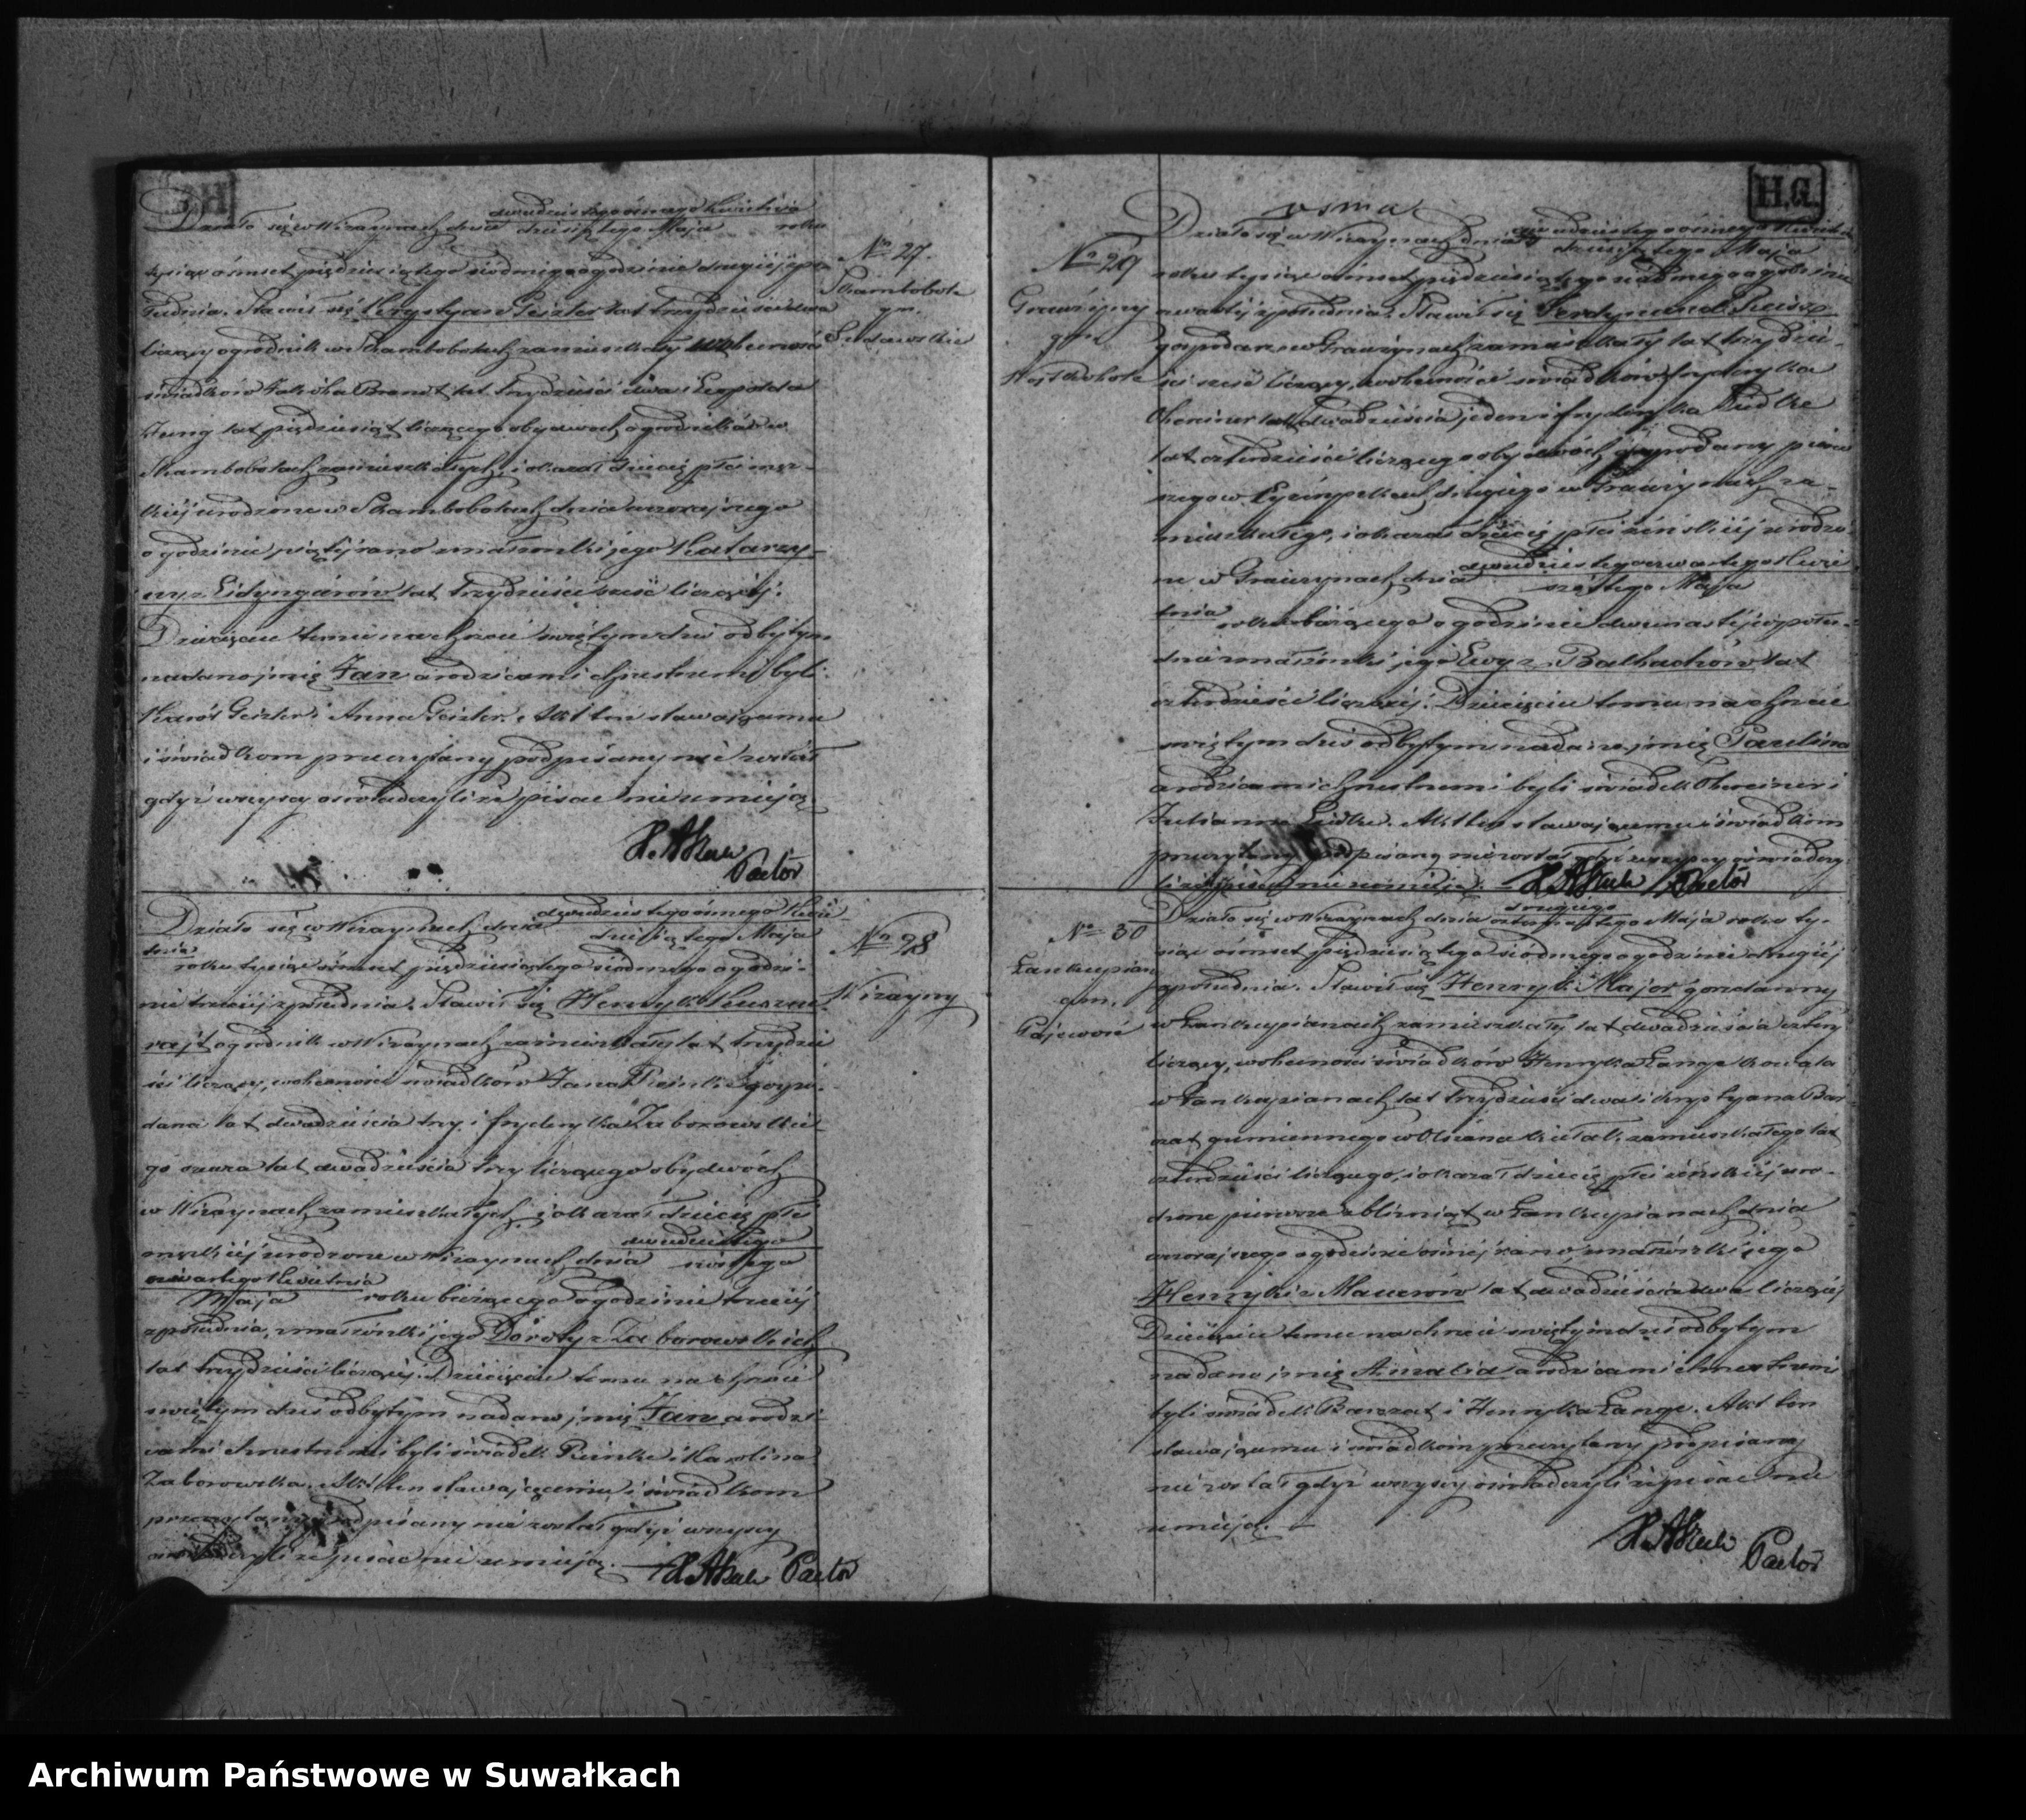 Działo się w Wiżaynach dnia dwudziestego ósmego Kwietnia
dziesiątego Maja roku
tysiąc ośmset pięćdziesiątego siódmego o godzinie drugiej z po-
łudnia. Stawił się Krystyan Geszter lat trzydzieści dwa
liczący ogrodnik w Skambobolach zamieszkały w obecności
świadków Jakóba Brandt lat trzydzieści dwa i Leopolda
Jung lat pięćdziesiąt liczącego obydwóch ogrodników w
Skambobolach zamieszkałych, i okazał dziecię płci męz-
kiej urodzone w Skambobolach dnia wczorajszego
o godzinie piątej rano z małżonki jego Katarzy-
ny z lat trzydzieści sześć liczącej.
Dziecięciu temu na chrzcie świętym dziś odbytym
nadano imię Jan a rodzicami chrzestnemi byli
Karól Geszter i Anna Geszter. Akt ten stawającemu
i świadkom przeczytany podpisany nie został
gdyż wszyscy oświadczyli że pisać nie umieją.
Pastor
No 27.
Skambobole
gm.
Sudawskie
Działo się w Wiżaynach dnia dwudziestego ósmego Kwie-
dziesiątego Maja
tnia
roku tysiąc ośmset pięćdziesiątego siódmego o godzi-
nie trzeciej z południa. Stawił się Henryk
ogrodnik w Wiżaynach zamieszkały lat trzydzie
ści liczący, w obecności świadków Jana
lat dwadzieścia trzy i Fryderyka Zaborowskie-
go lat dwadzieścia trzy liczącego obydwóch
w Wiżaynach zamieszkałych, i okazał dziecię płci
dwudziestego
męzkiej urodzone w Wiżaynach dnia szóstego
czwartego Kwietnia
Maja roku bieżącego o godzinie trzeciej
z południa, z małżonki jego Doroty z Zaborowskich
lat trzydzieści liczącej. Dziecięciu temu na chrzcie
świętym dziś odbytym nadano imię Jan a rodzi-
cami chrzestnemi byli świadek Reinke i Karolina
Zaborowska. Akt ten stawającemu i świadkom
przeczytany podpisany nie został gdyż wszyscy
oświadczyli że pisać nie umieją.
Pastor
No 28
Wiżayny
H.G.
osma
Działo się w Wiżaynach dnia dwudziestego ósmego Kwiet
dziesiątego Maja
roku tysiąc ośmset pięćdziesiątego siódmego o godzinie
czwartej z południa. Stawił się Ferdynand
gospodarz w Grauzynach zamieszkały lat trzydzie-
ści sześć liczący, w obecności świadków Fryderyka
lat dwadzieścia jeden i Fryderyka Lidke
lat czterdzieści liczącego obydwóch gospodarzy pierw
szego w drugiego w Grauzynach za-
mieszkałego, i okazał dziecię płci żeńskiej urodzo-
dwudziestego czwartego Kwie
ne w Grauzynach dnia szóstego Maja
tnia roku bieżącego o godzinie dwunastej z połu-
dnia z małżonki jego Ewy z lat
czterdzieści liczącej. Dziecięciu temu na chrzcie
świętym dziś odbytym nadano imię Paulina
a rodzicami chrzestnemi byli świadek i
Julianna Lidke. Akt ten stawającemu i świadkom
przeczytany podpisany nie został gdyż wszyscy oświadczy-
li że pisać nie umieją. Pastor
No 29
Grauzyny
gm
Działo się w Wiżaynach dnia drugiego
czternastego Maja roku ty-
siąc ośmset pięćdziesiątego siódmego o godzinie drugiej
z południa. Stawił się Henryk Major
w Łankupianach zamieszkały lat dwadzieścia cztery
liczący, w obecności świadków Henryka Lange kowala
w Łankupianach lat trzydzieści dwa i Krystyana Bar-
czat gumiennego w zamieszkałego lat
czterdzieści liczącego, i okazał dziecię płci żeńskiej uro-
dzone pierwsze z bliźniąt w Łankupianach dnia
wczorajszego o godzinie ósmej rano, z małżonki jego
Henryki z Mauerów lat dwadzieścia dwa liczącej
Dziecięciu temu na chrzcie świętym dziś odbytym
nadano imię Amalia a rodzicami chrzestnemi
byli świadek Barczat i Henryka Lange. Akt ten
stawającemu i świadkom przeczytany podpisany
nie został gdyż wszyscy oświadczyli że pisać nie
umieją.
Pastor
No 30
Łankupiany
gm.
Pajewoń
Archiwum Państwowe w Suwałkach